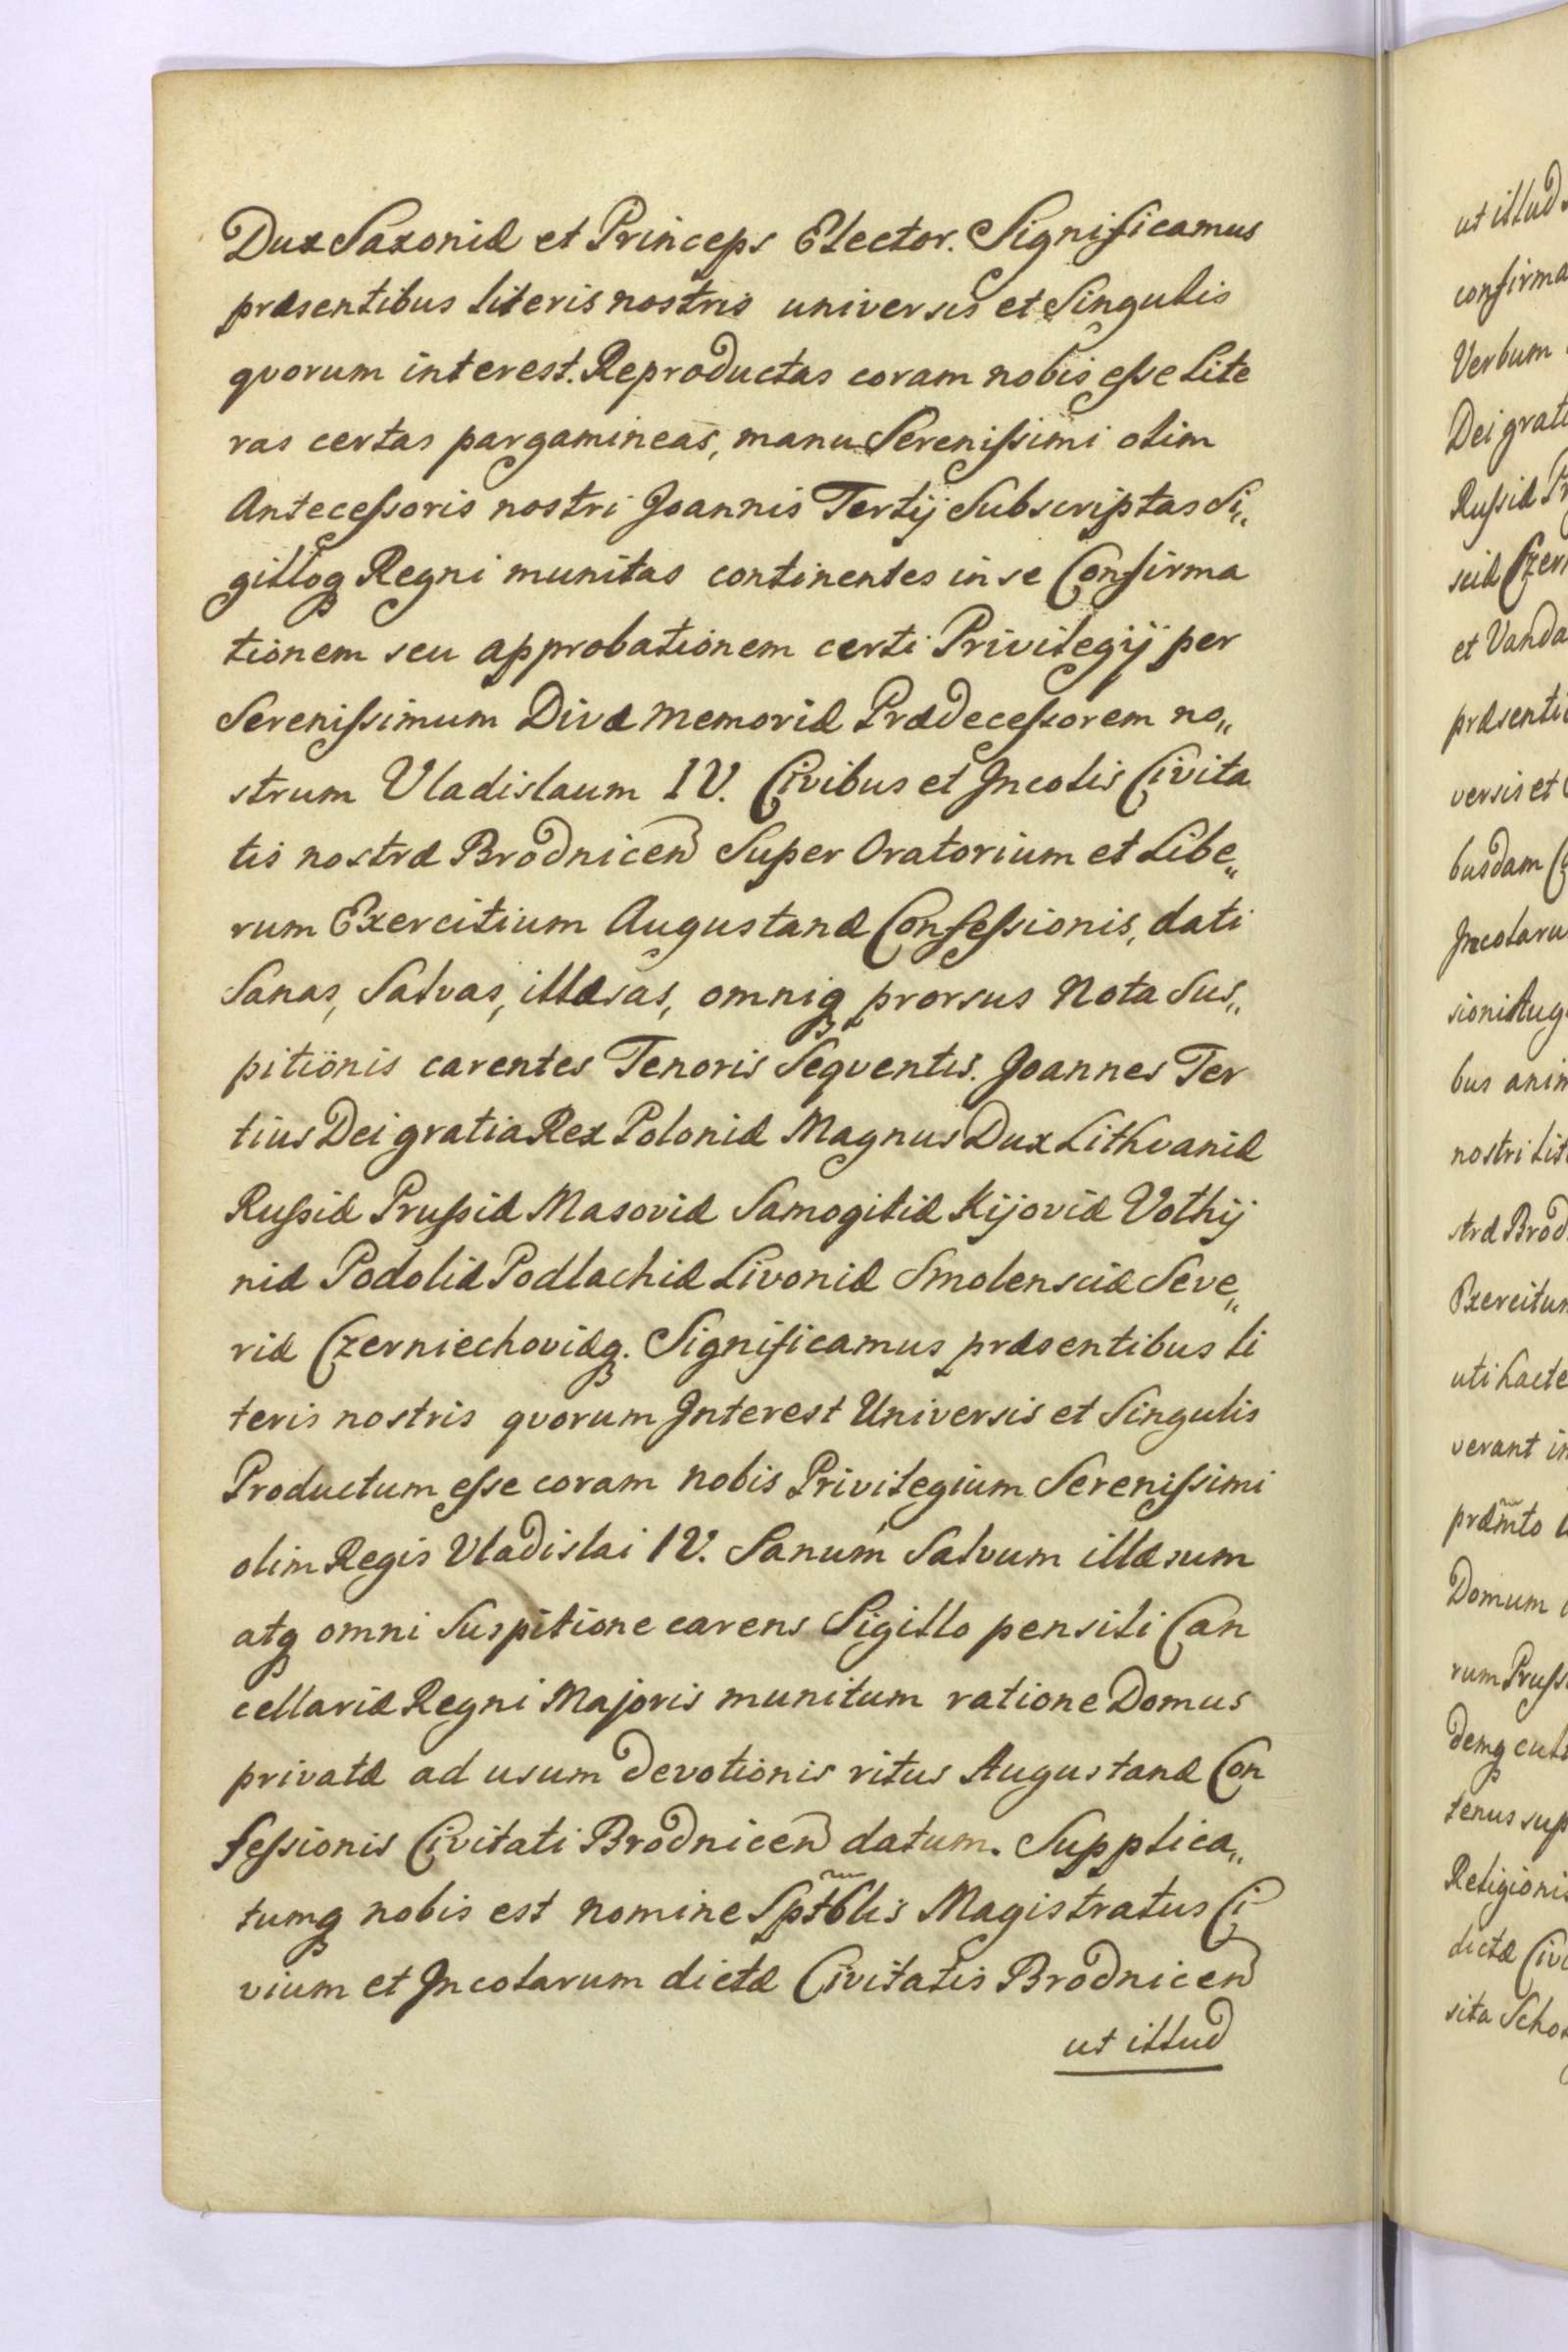 Dux Saxoniæ et Princeps Elector. Significamus
præsentibus literis nostris universis et Singulis
qvorum interest. Reproductas coram nobis eſse Lite
ras certas pargamineas, manu Sereniſsimi olim
Anteceſsoris nostri Joannis Tertij Subscriptas Si„
gilloq Regni munitas continentes in se Confirma
tionem seu approbationem certi Privilegij per
Sereniſsimum Divæ memoriæ Prædeceſsorem no„
strum Vladislaum IV. Civibus et Incolis Civita
tis nostræ Brodnicen Super Oratorium et Libe„
rum Exercitium Augustanæ Confeſsionis, dati
Sanas, Salvas, illæsas, omniq prorsus Nota Sus„
pitionis carentes Tenoris Seqventis. Joannes Ter
tius Dei gratia Rex Poloniæ Magnus Dux Lithvaniæ
Ruſsiæ Pruſsiæ Masoviæ Samogitiæ Kijoviæ Volhij
niæ Podoliæ Podlachiæ Livoniæ Smolensciæ Seve„
riæ Czerniechoviæq. Significamus præsentibus li
teris nostris qvorum Interest Universis et Singulis
Productum eſse coram nobis Privilegium Sereniſsimi
olim Regis Vladislai IV. Sanum Salvum illæsum
atq omni Suspitione carens Sigillo pensili Can
cellariæ Regni Majoris munitum ratione Domus
privatæ ad usum devotionis ritus Augustanæ Con
feſsionis Civitati Brodnicen datum. Supplica„
tumq nobis est nomine Sptblis Magistratus Ci
vium et Incolarum dictæ Civitatis Brodnicen
ut illud
ut illud
confirma
Verbum
Dei grati
Ruſsiæ Pr
sciæ Czern
et Vanda
præsenti
versis et
busdam C
Incolaru
sioni Aug
bus anim
nostri Lit
stræ Brod
Exercitum
uti hacte
verant in
præmto
Domum
rum Pruſs
demq cult
tenus sup
Religionis
dictæ Civi
sita Scho